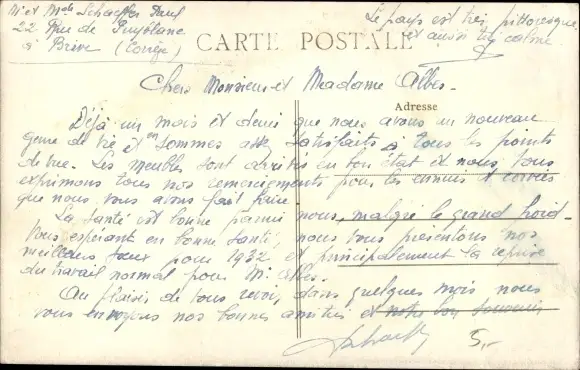 Mr et Mde Schaeffer Paul
22 Rue de Puyblanc
à Brive (Corrèze)
Le pays est très pittoresque
et aussi très calme
CARTE POSTALE
Chers Monsieur et Madame Albes.
Adresse
Déjà un mois et demi que nous avons un nouveau
genre de vie et en sommes assez satisfaits à tous les points
de vue. Les meubles sont arrivés en bon état et nous vous
exprimons tous nos remerciements pour les ennuis et corvées
que nous vous avons fait faire.
La santé est bonne parmi nous, malgré le grand froid.
Vous espérant en bonne santé, nous vous présentons nos
meilleurs vœux pour 1932 et principalement la reprise
du travail normal pour Mr Albes.
Au plaisir de vous revoir dans quelques mois nous
vous envoyons nos bonnes amitiés et notre bon souvenir
5,-